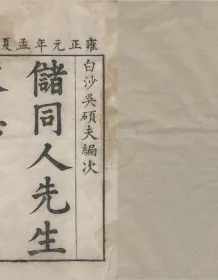 雍正元年孟夏
白沙吳碩夫編次
儲同人先生